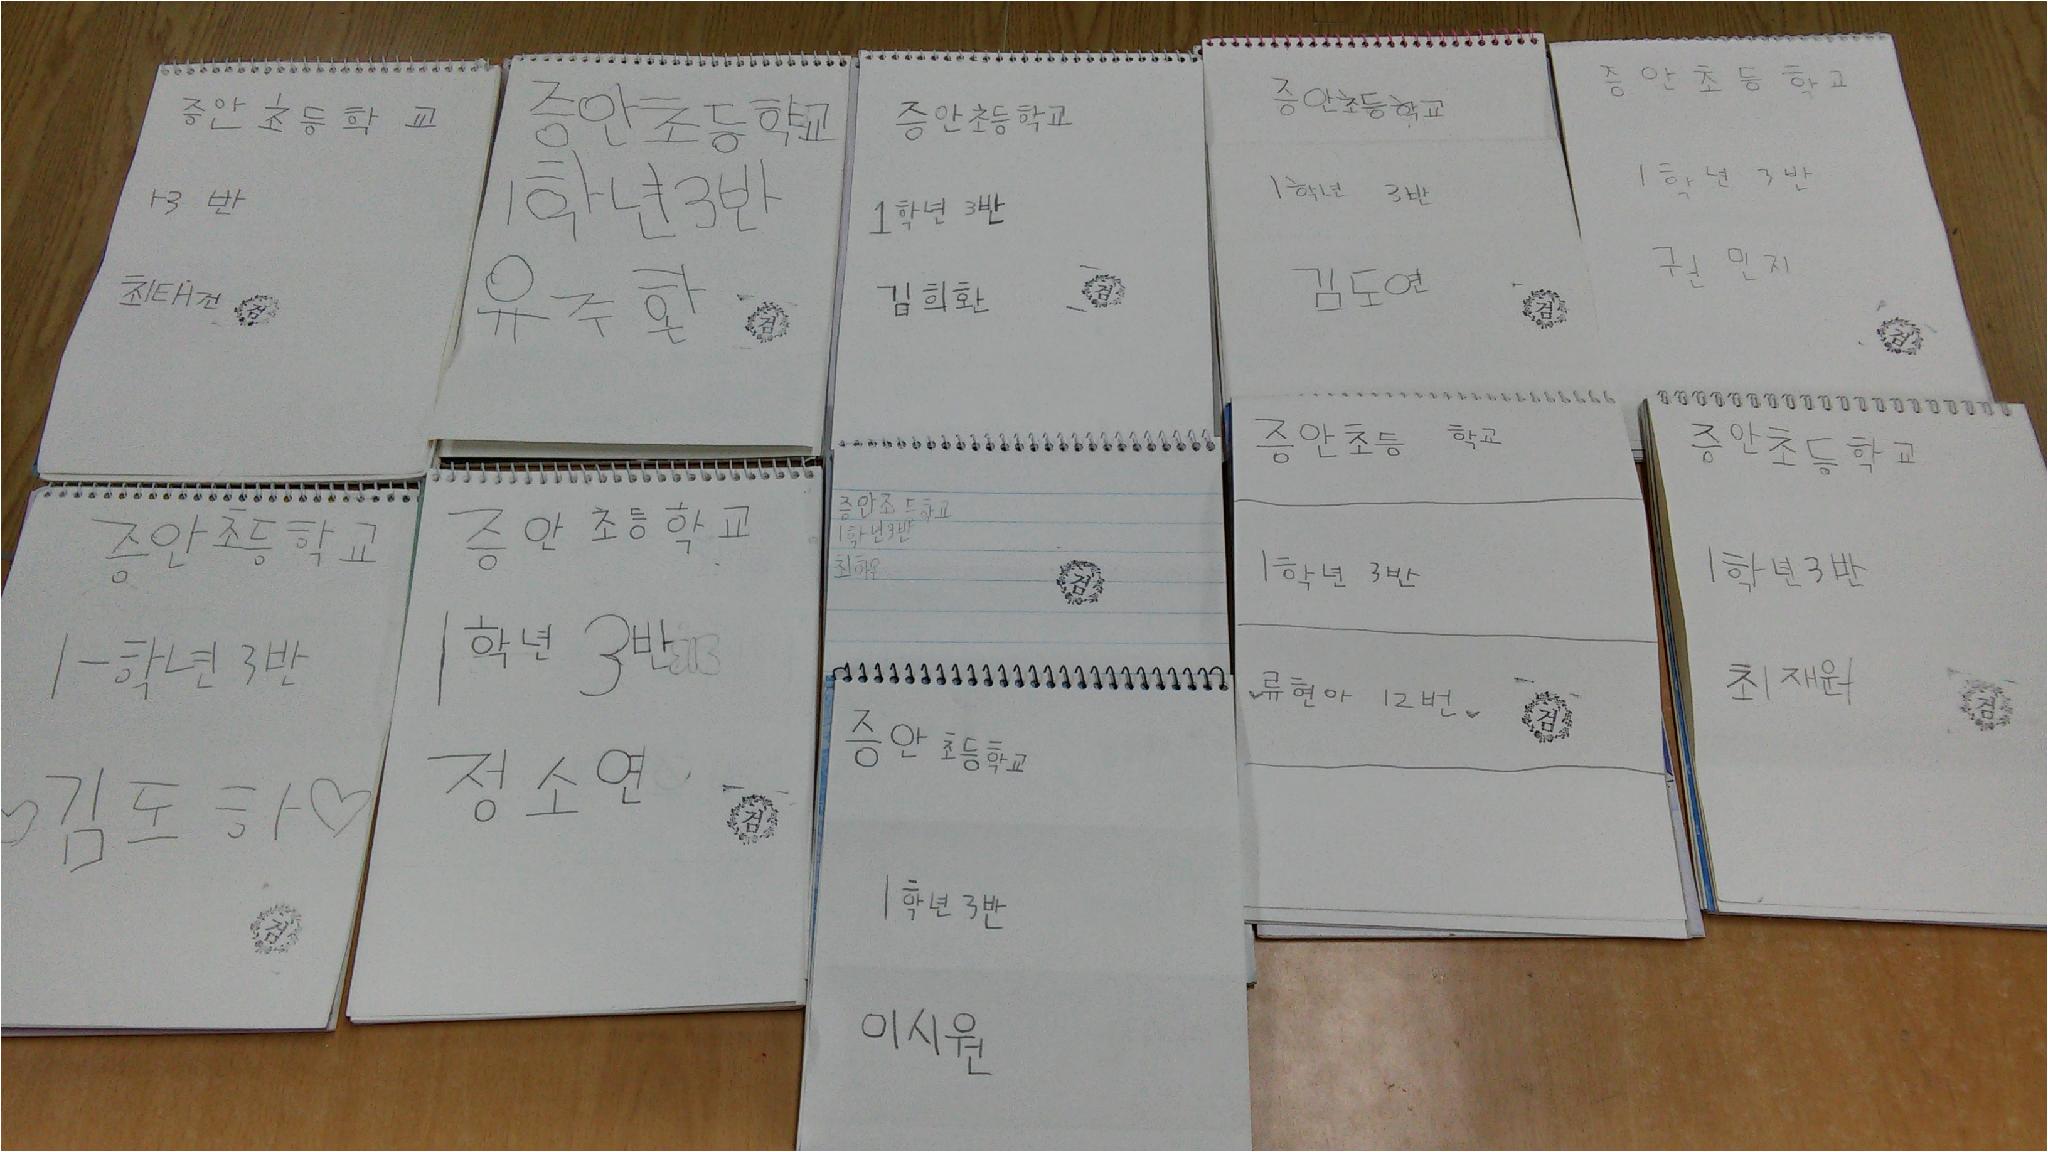 증안초등학교
1-3 반
최태건
검
증안초등학교
1학년3반
유주환
검
증안초등학교
1학년 3반
김희환
검
증안초등학교
1학년 3반
김도연
검
증안초등학교
1학년 3반
권민지
검
증안초등학교
1-학년 3반
♡김도하♡
검
증안초등학교
1학년 3반
정소연
검
증안초등학교
1학년3반
최하운
검
증안초등학교
1학년 3반
이시원
증안초등 학교
1학년 3반
류현아 12번
검
증안초등학교
1학년3반
최재원
검